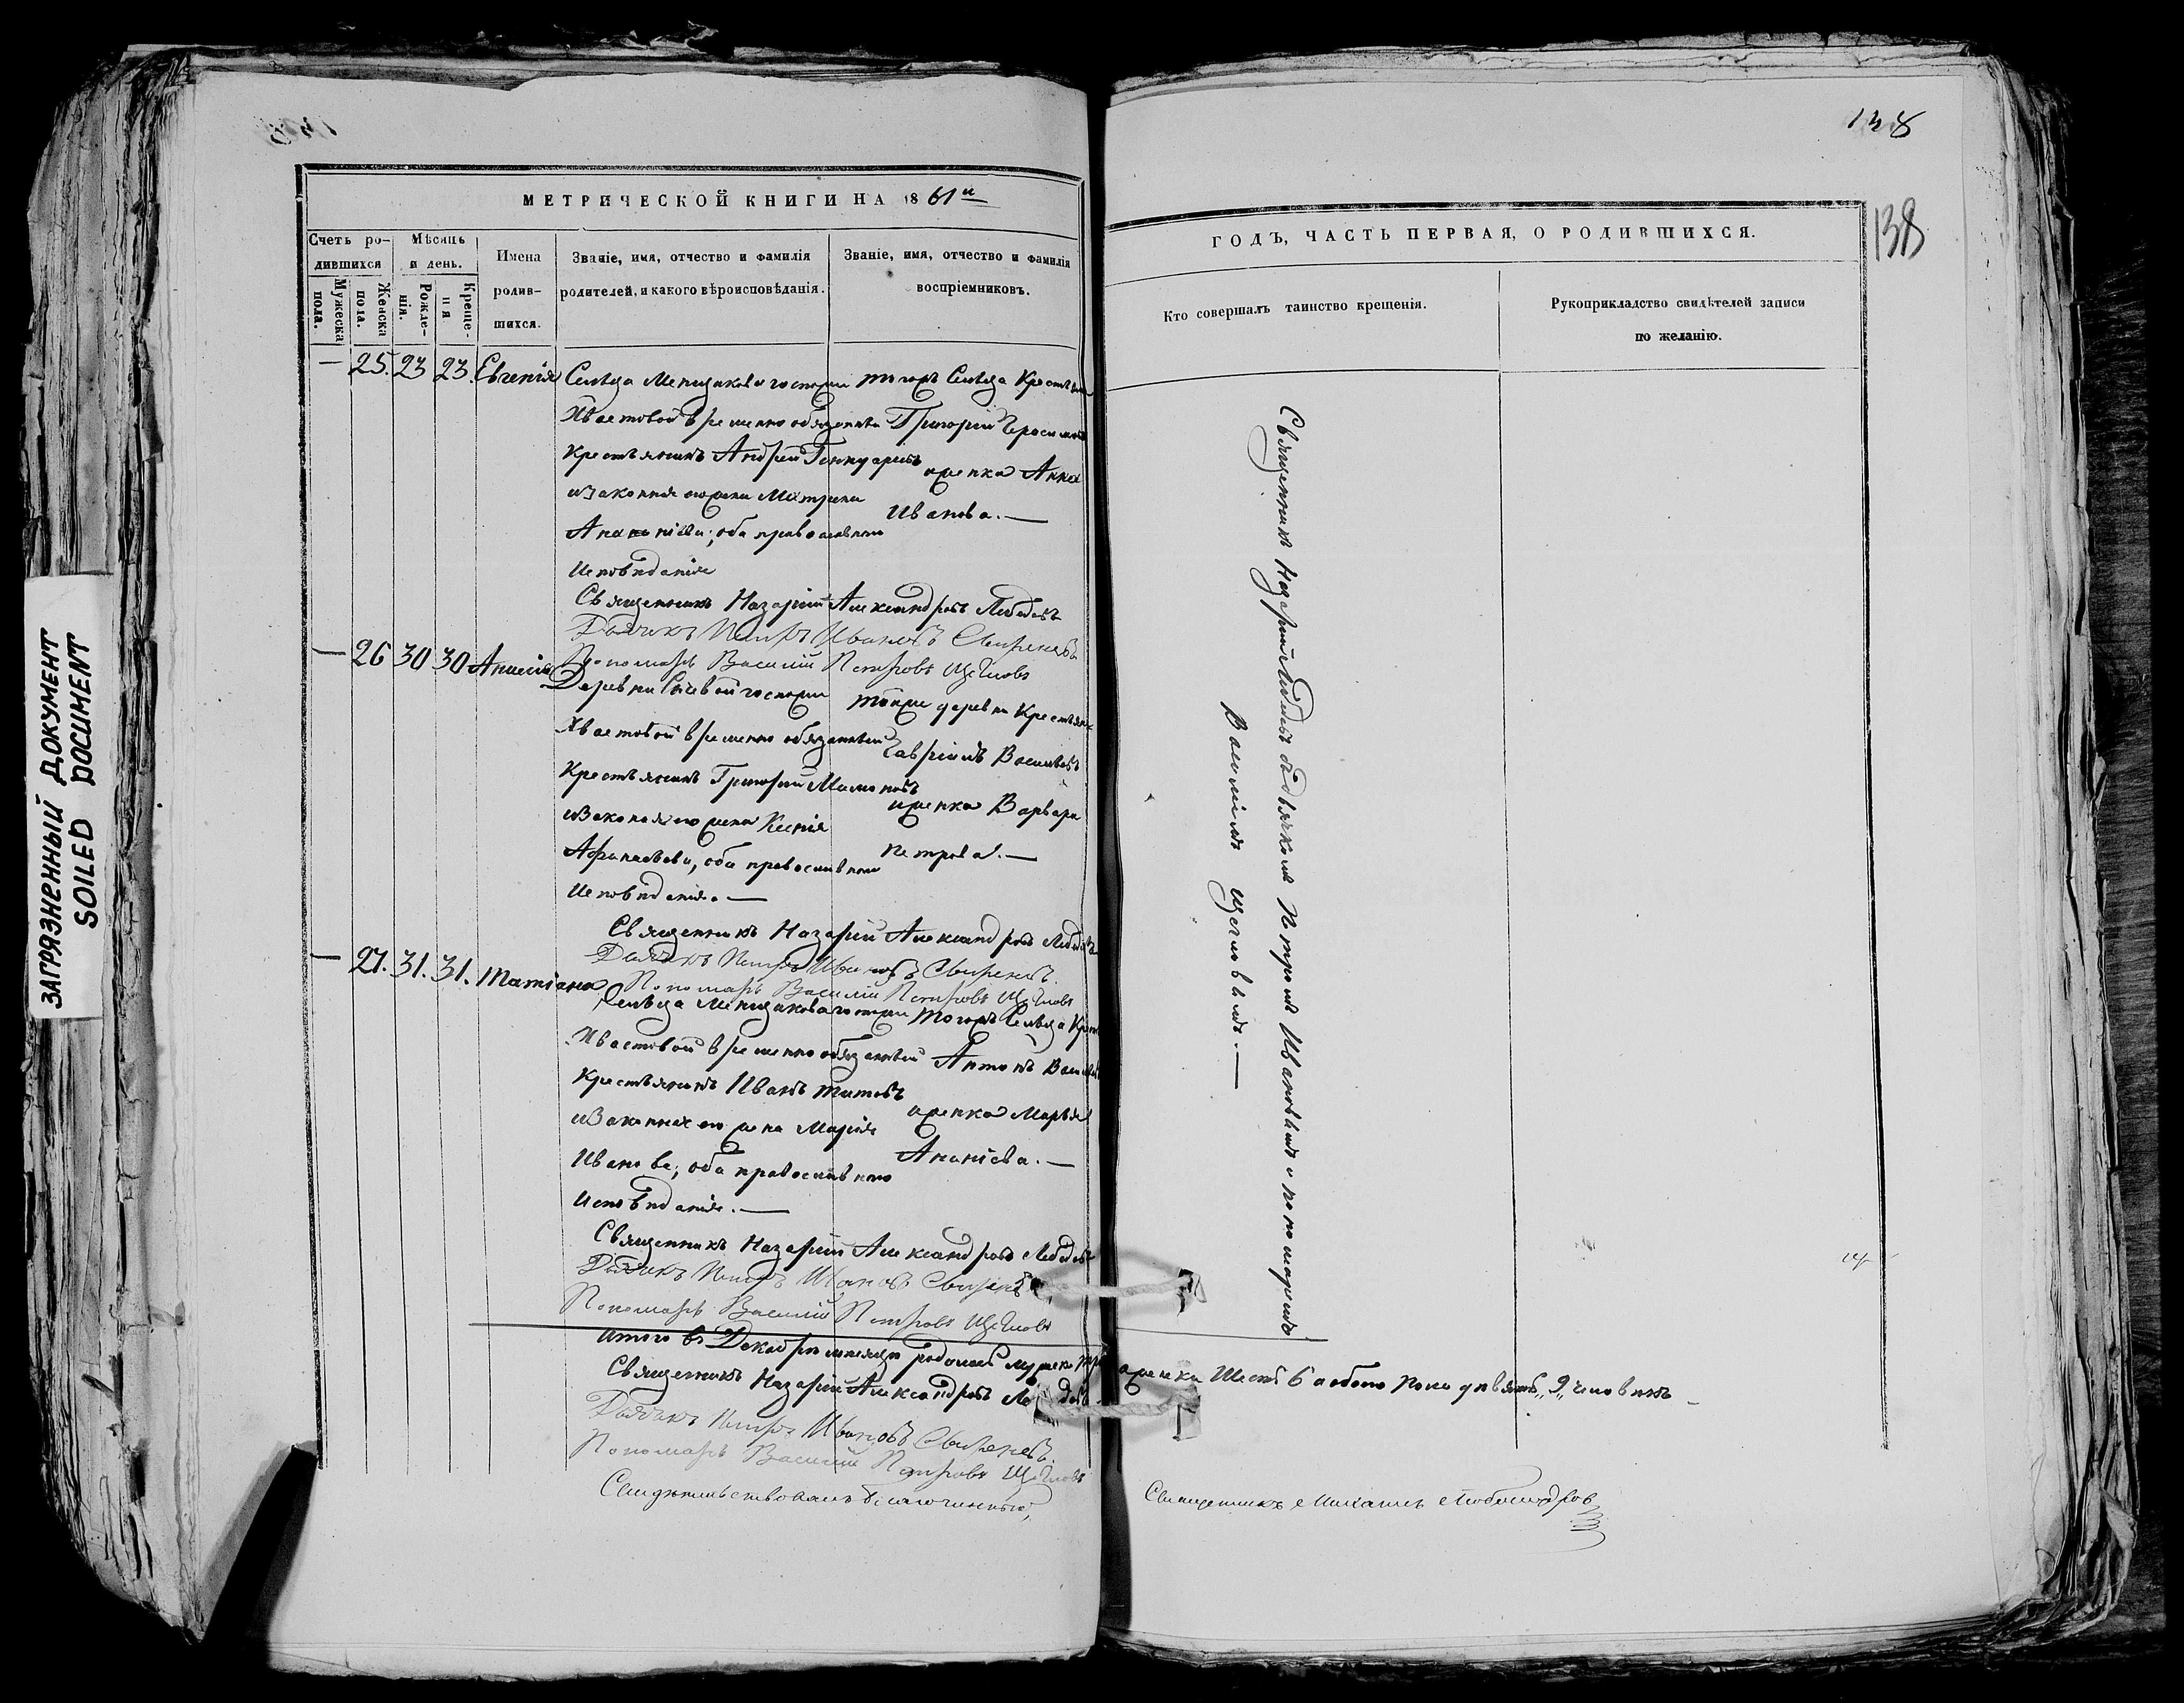 138
138
ЗАГРЯЗНЕННЫЙ ДОКУМЕНТ
SOILED DOCUMENT
МЕТРИЧЕСКОЙ КНИГИ НА 1861й
Счетъ ро-
дившихся
Мужеска пола.
Женска пола.
Мѣсяцъ
и день.
Рожде-
нія.
Креще-
нія
Имена
родив-
шихся.
Званіе, имя, отчество и фамилія
родителей, и какого вѣроисповѣданія.
Званіе, имя, отчество и фамилія
воспріемниковъ.
— 25. 23 23. Евгенія
Сельца госпожи
Хвастовой временно обязанный
Крестьянинъ Андрей
и законная его жена Матрона
Ананіева; оба православнаго
Исповѣданія
тогожъ Сельца
Григорій Герасимовъ
и женка Анна
Иванова. —
Священникъ Назарій Александровъ Лебедевъ
Дьячекъ Петръ Ивановъ
Пономарь Василій Петровъ Щегловъ
— 26 30 30 Анисія
Деревни госпожи
Хвастовой временно обязанный
Крестьянинъ Григорій
и законная его жена Ксенія
Афанасьева, оба православнаго
Исповѣданія. —
тойже деревни
Гавріилъ Васильевъ
и женка Варвара
Петрова. —
Священникъ Назарій Александровъ Лебедевъ
Дьячекъ Петръ Ивановъ
Пономарь Василій Петровъ Щегловъ
— 27. 31. 31. Татіана
Сельца госпожи
Хвастовой временно обязанный
Крестьянинъ Иванъ Титовъ
и законная его жена Марія
Иванова; оба православнаго
Исповѣданія. —
тогожъ Сельца
Антонъ
и женка Марья
Ананіева. —
Священникъ Назарій Александровъ Лебедевъ
Дьячекъ Петръ Ивановъ
Пономарь Василій Петровъ Щегловъ
Итого въ Декабрѣ мѣсяцѣ родилось мужеска три женска Шесть 6 а обоего пола девять „9„ человѣкъ
Священникъ Назарій Александровъ
Дьячекъ Петръ Ивановъ
Пономарь Василій Петровъ Щегловъ
Свидѣтельствовалъ Благочинный, Священникъ Михаилъ
ГОДЪ, ЧАСТЬ ПЕРВАЯ, О РОДИВШИХСЯ.
Кто совершалъ таинство крещенія.
Рукоприкладство свидѣтелей записи
по желанію.
Священникъ Назарій Лебедевъ съ дьячкомъ Петромъ Ивановымъ и пономаремъ
Василіемъ Щегловымъ. —